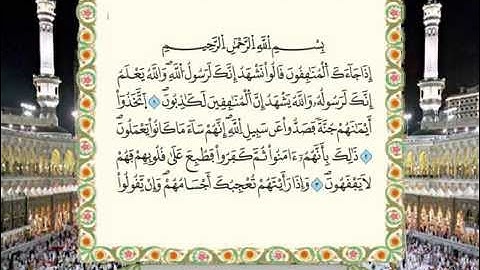 بِسْمِ اللَّهِ الرَّحْمَٰنِ الرَّحِيمِ
إِذَا جَاءَكَ الْمُنَافِقُونَ قَالُوا نَشْهَدُ إِنَّكَ لَرَسُولُ اللَّهِ وَاللَّهُ يَعْلَمُ
إِنَّكَ لَرَسُولُهُ وَاللَّهُ يَشْهَدُ إِنَّ الْمُنَافِقِينَ لَكَاذِبُونَ ١ اتَّخَذُوا
أَيْمَانَهُمْ جُنَّةً فَصَدُّوا عَن سَبِيلِ اللَّهِ إِنَّهُمْ سَاءَ مَا كَانُوا يَعْمَلُونَ
٢ ذَٰلِكَ بِأَنَّهُمْ ءَامَنُوا ثُمَّ كَفَرُوا فَطُبِعَ عَلَىٰ قُلُوبِهِمْ فَهُمْ
لَا يَفْقَهُونَ ٣ وَإِذَا رَأَيْتَهُمْ تُعْجِبُكَ أَجْسَامُهُمْ وَإِن يَقُولُوا